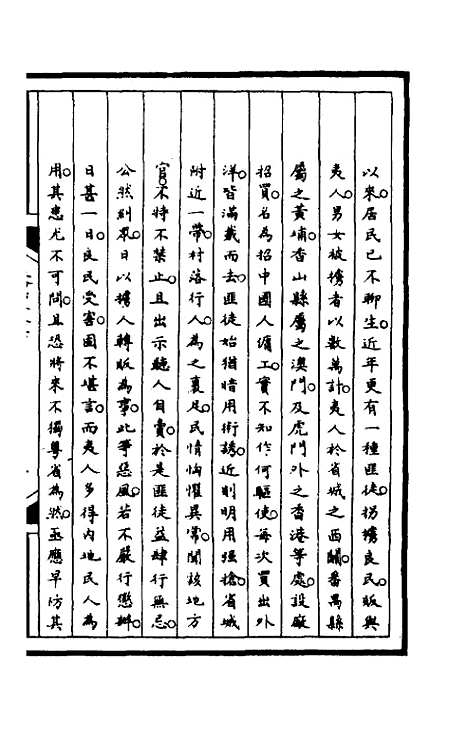 以來居民已不聊生。近年更有一種匪徒。拐擄良民。販與
夷人。男女被擄者以數萬計。夷人於省城之西關。番禺縣
屬之黃埔。香山縣屬之澳門。及虎門外之香港等處。設廠
招買。名為招中國人傭工。實不知作何驅使。每次買出外
洋。皆滿載而去。匪徒始猶暗用術誘。近則明用強搶。省城
附近一帶村落。行人為之裹足。民情惶懼異常。聞該地方
官不特不禁止。且出示聽人自賣。於是匪徒益肆行無忌。
公然糾眾。日以擄人轉販為事。此等惡風。若不嚴行懲辦。
日甚一日。良民受害。固不堪言。而夷人多得內地民人為
用。其患尤不可問。且恐將來不獨粵省為然。亟應早防其